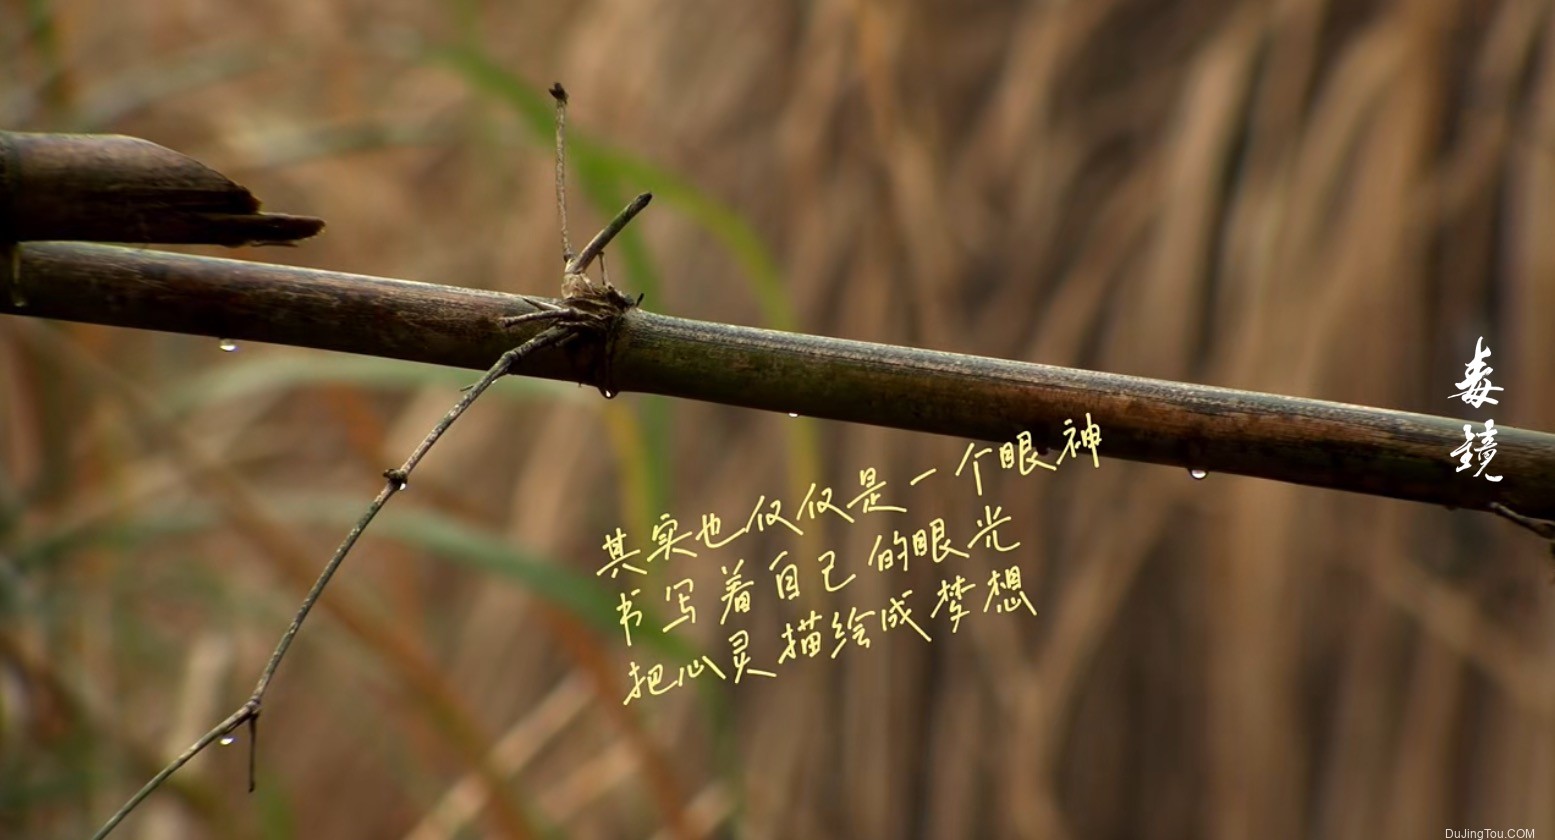 其实也仅仅是一个眼神
书写着自己的眼光
把心灵描绘成梦想
毒镜
DuJingTou.COM